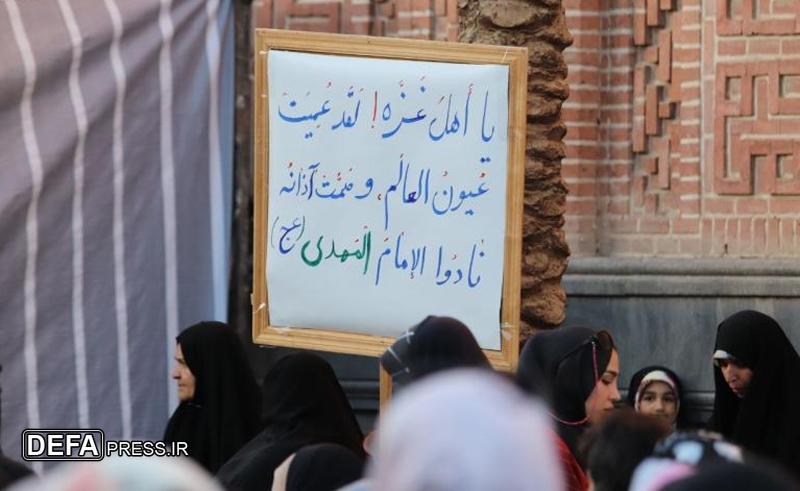 يا أَهلَ غَـزّه! لَقَد عُمِيَت
عُيونُ العالَم، و صُمَّت آذانُه
نادُوا الإمامَ المَهدی (عج)
DEFAPRESS.IR